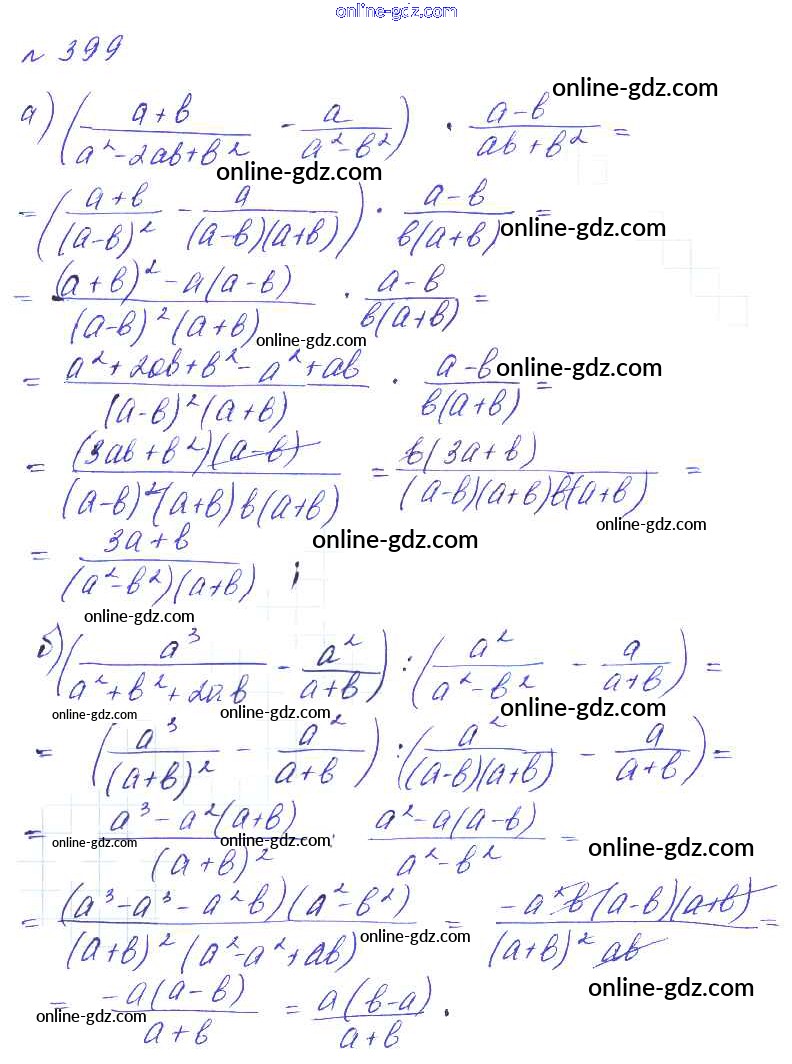 online-gdz.com
№ 399
а) ((a+b)/(a²-2ab+b²) - a/(a²-b²)) · (a-b)/(ab+b²) = online-gdz.com
online-gdz.com
= ((a+b)/(a-b)² - a/((a-b)(a+b))) · (a-b)/(b(a+b)) = online-gdz.com
= ((a+b)²-a(a-b))/((a-b)²(a+b)) · (a-b)/(b(a+b)) =
online-gdz.com
= (a²+2ab+b²-a²+ab)/((a-b)²(a+b)) · (a-b)/(b(a+b)) = online-gdz.com
= ((3ab+b²)(a-b))/((a-b)²(a+b)b(a+b)) = (b(3a+b))/((a-b)(a+b)b(a+b)) =
online-gdz.com
= (3a+b)/((a²-b²)(a+b)) ; online-gdz.com
online-gdz.com
б) (a³/(a²+b²+2ab) - a²/(a+b)) : (a²/(a²-b²) - a/(a+b)) =
online-gdz.com online-gdz.com online-gdz.com
= (a³/(a+b)² - a²/(a+b)) : (a²/((a-b)(a+b)) - a/(a+b)) =
= (a³-a²(a+b))/(a+b)² : (a²-a(a-b))/(a²-b²) =
online-gdz.com online-gdz.com online-gdz.com
= ((a³-a³-a²b)(a²-b²))/((a+b)²(a²-a²+ab)) = (-a²b(a-b)(a+b))/((a+b)²ab) =
online-gdz.com
= (-a(a-b))/(a+b) = (a(b-a))/(a+b) .
online-gdz.com online-gdz.com